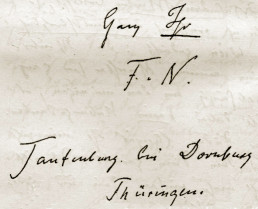 Ganz Ihr
F. N.
Tautenburg bei Dornburg
Thüringen.